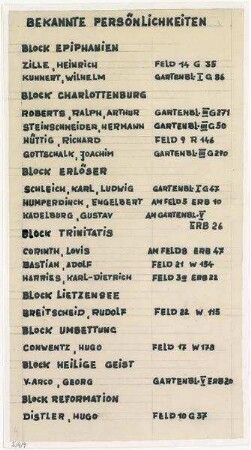 BEKANNTE PERSÖNLICHKEITEN
BLOCK EPIPHANIEN
ZILLE, HEINRICH FELD 14 G 35
KUHNERT, WILHELM GARTENBL. I G 86
BLOCK CHARLOTTENBURG
ROBERTS, RALPH, ARTHUR GARTENBL. III G 271
STEINSCHNEIDER, HERMANN GARTENBL. III G 50
HÜTTIG, RICHARD FELD 9 R 146
GOTTSCHALK, JOACHIM GARTENBL. III G 290
BLOCK ERLÖSER
SCHLEICH, KARL, LUDWIG GARTENBL. I G 47
HUMPERDINCK, ENGELBERT AM FELD 3 ERB 10
KADELBURG, GUSTAV AM GARTENBL. V
ERB 26
BLOCK TRINITATIS
CORINTH, LOVIS AM FELD 8 ERB 47
BASTIAN, ADOLF FELD 21 W 134
HARRIES, KARL-DIETRICH FELD ERB 22
BLOCK LIETZENSEE
BREITSCHEID, RUDOLF FELD 22 W 115
BLOCK UMBETTUNG
CONWENTZ, HUGO FELD 17 W 178
BLOCK HEILIGE GEIST
V. ARCO, GEORG GARTENBL. V ERB 20
BLOCK REFORMATION
DISTLER, HUGO FELD 10 G 37